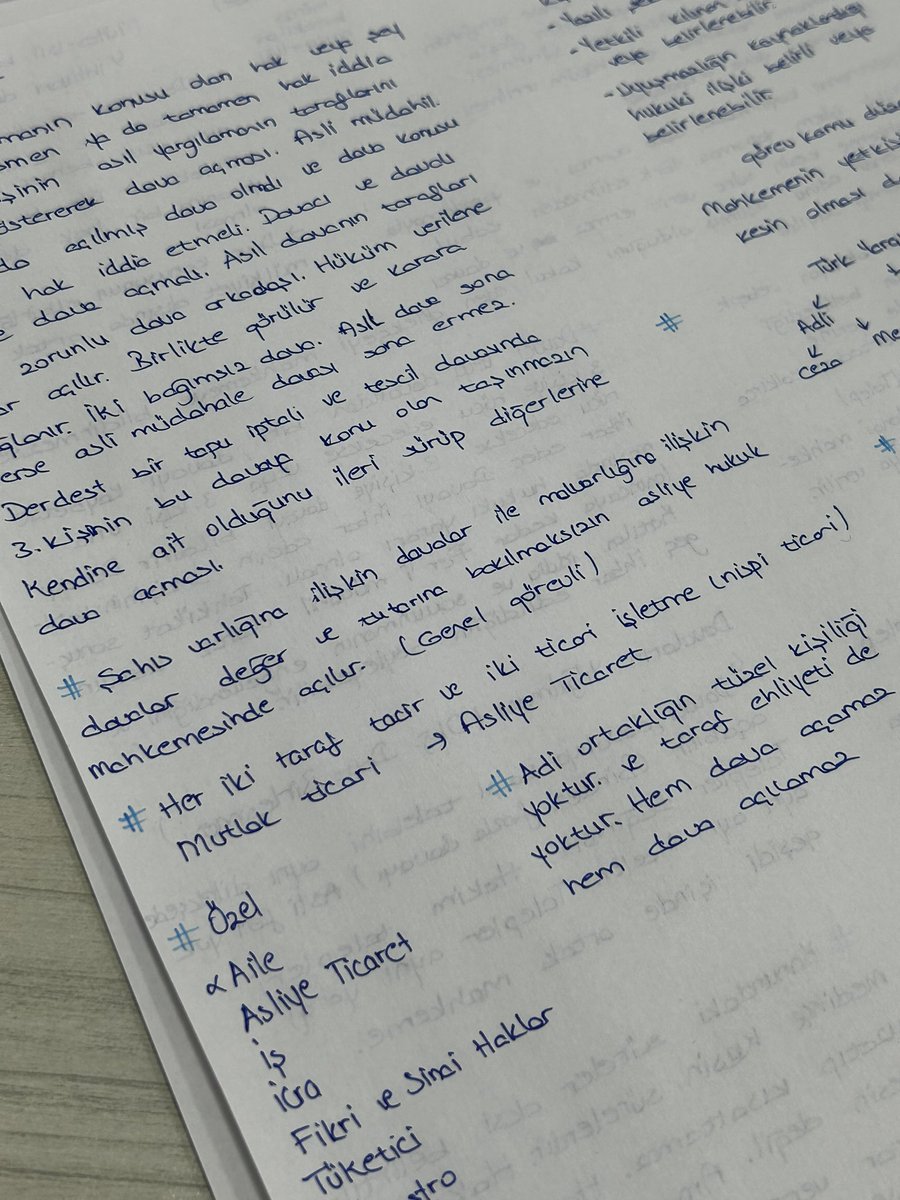 manın konusu olan hak veya şey
smen ya da tamamen hak iddia
işinin asıl yargılamanın taraflarını
östererek dava açması. Asli müdahil.
da açılmış dava olmalı ve dava konusu
hak iddia etmeli. Davacı ve davalı
e dava açmalı. Asıl davanın tarafları
zorunlu dava arkadaşı. Hüküm verilene
ar açılır. Birlikte görülür ve karara
ğlanır. İki bağımsız dava. Asıl dava sona
erse asli müdahale davası sona ermez.
Derdest bir tapu iptali ve tescil davasında
3. kişinin bu davaya konu olan taşınmazın
kendine ait olduğunu ileri sürüp diğerlerine
dava açması.
# Şahıs varlığına ilişkin davalar ile malvarlığına ilişkin
davalar değer ve tutarına bakılmaksızın asliye hukuk
mahkemesinde açılır. (Genel görevli)
# Her iki taraf tacir ve iki ticari işletme (nispi ticari)
Mutlak ticari → Asliye Ticaret
# Adi ortaklığın tüzel kişiliği
yoktur. ve taraf ehliyeti de
yoktur. Hem dava açamaz
hem dava açılamaz
# Özel
Aile
Asliye Ticaret
İş
İcra
Fikri ve Sınai Haklar
Tüketici
stro
- Yazılı
- Yetkili kılınan
veya belirlenebilir.
- Uyuşmazlığın kaynaklandığı
hukuki ilişki belirli veya
belirlenebilir
görev kamu düze
Mahkemenin yetkisi
kesin olması d
#
Türk Yargı
Adli
Ceza Me
#